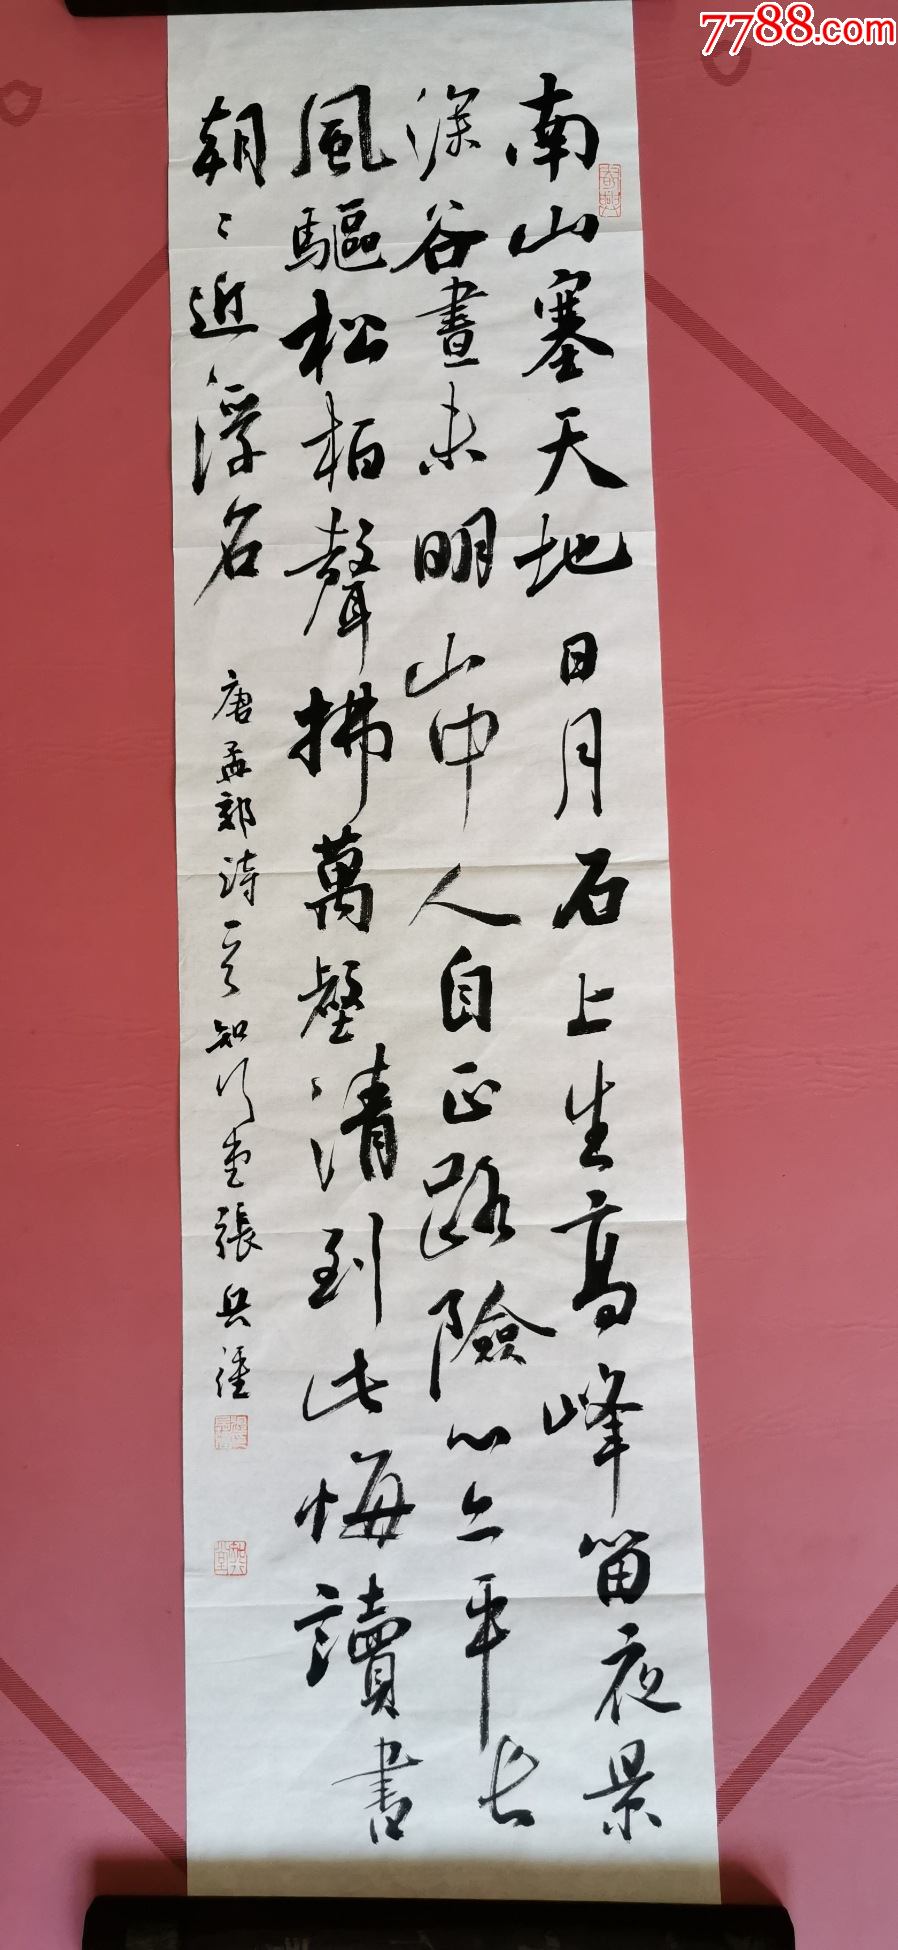 7788.com
南山塞天地日月石上生高峰留夜景
深谷晝未明山中人自正路險心亦平長
風驅松柏聲拂萬壑清到此悔讀書
朝〻近浮名
唐孟郊詩一首知行堂張兵